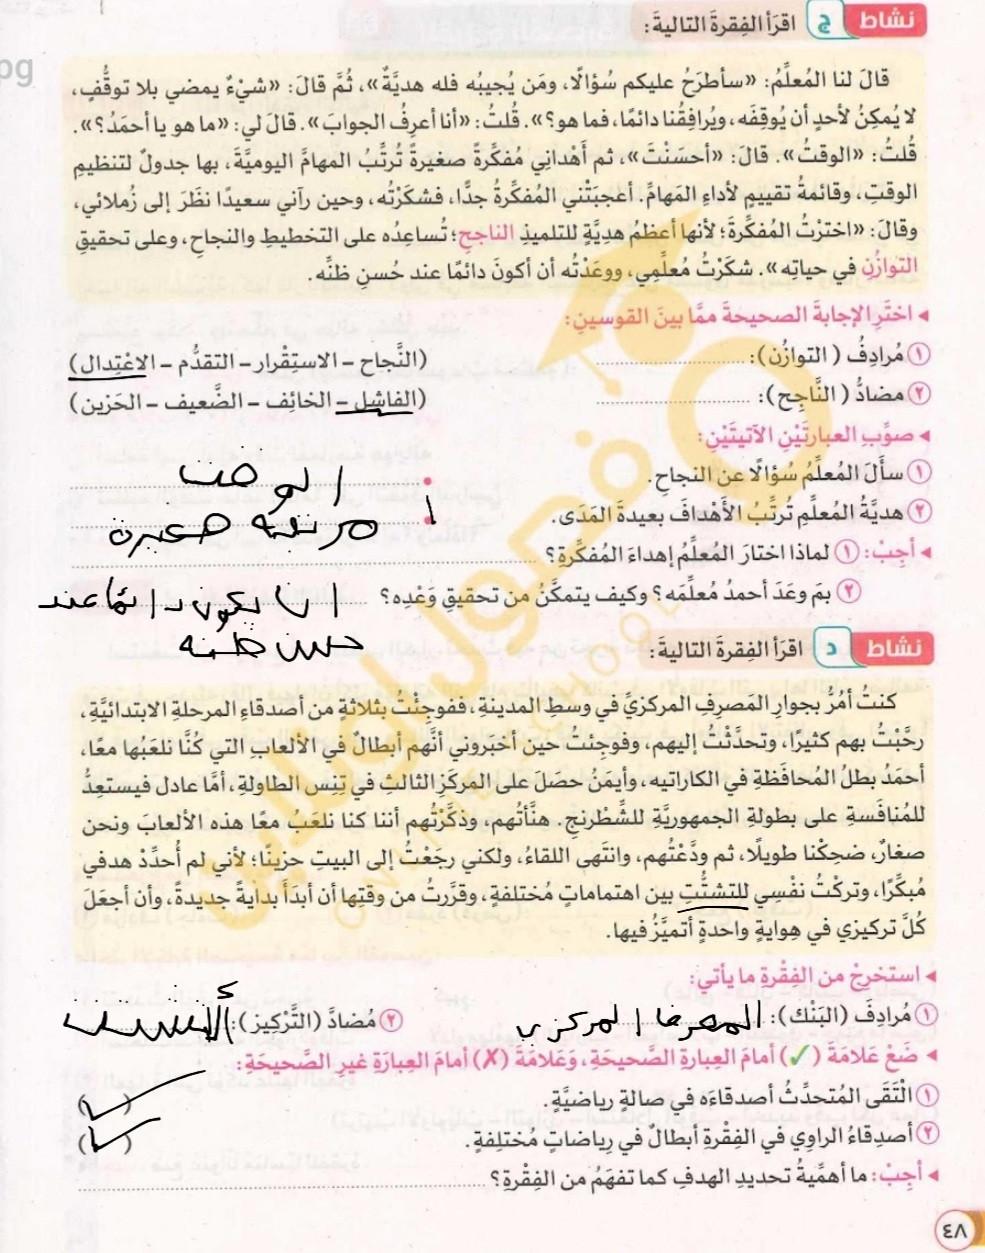 pg
نشاط ج اقرَأ الفِقرةَ التاليةَ:
قالَ لنا المُعلِّمُ: «سأطرَحُ عليكم سُؤالًا، ومَن يُجيبُه فله هديَّةٌ»، ثُمَّ قالَ: «شيْءٌ يمضي بلا توقُّفٍ،
لا يُمكِنُ لأحدٍ أن يُوقِفَه، ويُرافِقُنا دائمًا، فما هو؟». قُلتُ: «أنا أعرِفُ الجوابَ». قالَ لي: «ما هو يا أحمَدُ؟».
قُلتُ: «الوقتُ». قالَ: «أحسَنْتَ»، ثم أهْدانِي مُفكِّرةً صغيرةً تُرتَّبُ المهامَّ اليوميَّةَ، بها جدولٌ لتنظيمِ
الوقتِ، وقائمةُ تقييمٍ لأداءِ المَهامِّ. أعجبَتْني المُفكِّرةُ جدًّا، فشكَرْتُه، وحين رآني سعيدًا نظَرَ إلى زُملائي،
وقالَ: «اخترْتُ المُفكِّرةَ؛ لأنها أعظمُ هديَّةٍ للتلميذِ الناجحِ؛ تُساعِدُه على التخطيطِ والنجاحِ، وعلى تحقيقِ
التوازُنِ في حياتِه». شكَرْتُ مُعلِّمِي، ووعَدْتُه أن أكونَ دائمًا عند حُسنِ ظنِّه.
◂ اختَرِ الإجابةَ الصحيحةَ ممَّا بينَ القوسينِ:
١ مُرادِفُ (التوازُن): ........ (النَّجاح – الاستِقْرار – التقدُّم – الاعْتِدال)
٢ مضادُّ (النَّاجِح): ........ (الفاشِل – الخائِف – الضَّعيف – الحَزين)
◂ صوِّبِ العبارتَيْنِ الآتيتَيْنِ:
١ سألَ المُعلِّمُ سُؤالًا عن النجاحِ. الوقت
٢ هديَّةُ المُعلِّمِ تُرتِّبُ الأهْدافَ بعيدةَ المَدَى. صغيرة
◂ أجِبْ: ١ لماذا اختارَ المُعلِّمُ إهداءَ المُفكِّرةِ؟ ........
٢ بمَ وعَدَ أحمدُ مُعلِّمَه؟ وكيف يتمكَّنُ من تحقيقِ وَعْدِه؟ ان يكون دائما عند
حسن ظنه
نشاط د اقرَأ الفِقرةَ التاليةَ:
كنتُ أمُرُّ بجوارِ المَصرِفِ المركزيِّ في وسطِ المدينةِ، ففوجِئْتُ بثلاثةٍ من أصدقاءِ المرحلةِ الابتدائيَّةِ،
رحَّبْتُ بهم كثيرًا، وتحدَّثْتُ إليهم، وفوجِئتُ حين أخبَروني أنَّهم أبطالٌ في الألعابِ التي كُنَّا نلعَبُها معًا،
أحمَدُ بطلُ المُحافَظةِ في الكاراتيه، وأيمَنُ حصَلَ على المركَزِ الثالثِ في تِنِسِ الطاولةِ، أمَّا عادل فيستعِدُّ
للمُنافَسةِ على بطولةِ الجمهوريَّةِ للشَّطْرنجِ. هنَّأتُهم، وذكَّرْتُهم أننا كنا نلعَبُ معًا هذه الألعابَ ونحن
صغارٌ، ضحِكْنا طويلًا، ثم ودَّعْتُهم، وانتَهى اللقاءُ، ولكني رجَعْتُ إلى البيتِ حزينًا؛ لأني لم أُحدِّدْ هدفي
مُبكِّرًا، وتركْتُ نفْسِي للتشتُّتِ بين اهتماماتٍ مُختلفةٍ، وقرَّرتُ من وقتِها أن أبدَأَ بدايةً جديدةً، وأن أجعَلَ
كُلَّ تركيزي في هِوايةٍ واحدةٍ أتميَّزُ فيها.
◂ استخرِجْ من الفِقْرةِ ما يأتي:
١ مُرادِفَ (البَنْك): المصرف المركزي ٢ مُضادَّ (التَّرْكِيز):
◂ ضَعْ عَلامَةَ (✓) أمامَ العِبارةِ الصَّحيحةِ، وَعَلامَةَ (✗) أمامَ العِبارَةِ غيرِ الصَّحيحَةِ:
١ الْتَقَى المُتحدِّثُ أصدقاءَه في صالةٍ رياضيَّةٍ. (✓)
٢ أصدِقاءُ الراوِي في الفِقْرةِ أبطالٌ في رِياضاتٍ مُختلِفةٍ. (✓)
◂ أجِبْ: ما أهمِّيةُ تحديدِ الهدفِ كما تفهَمُ من الفِقْرةِ؟ ........
٤٨